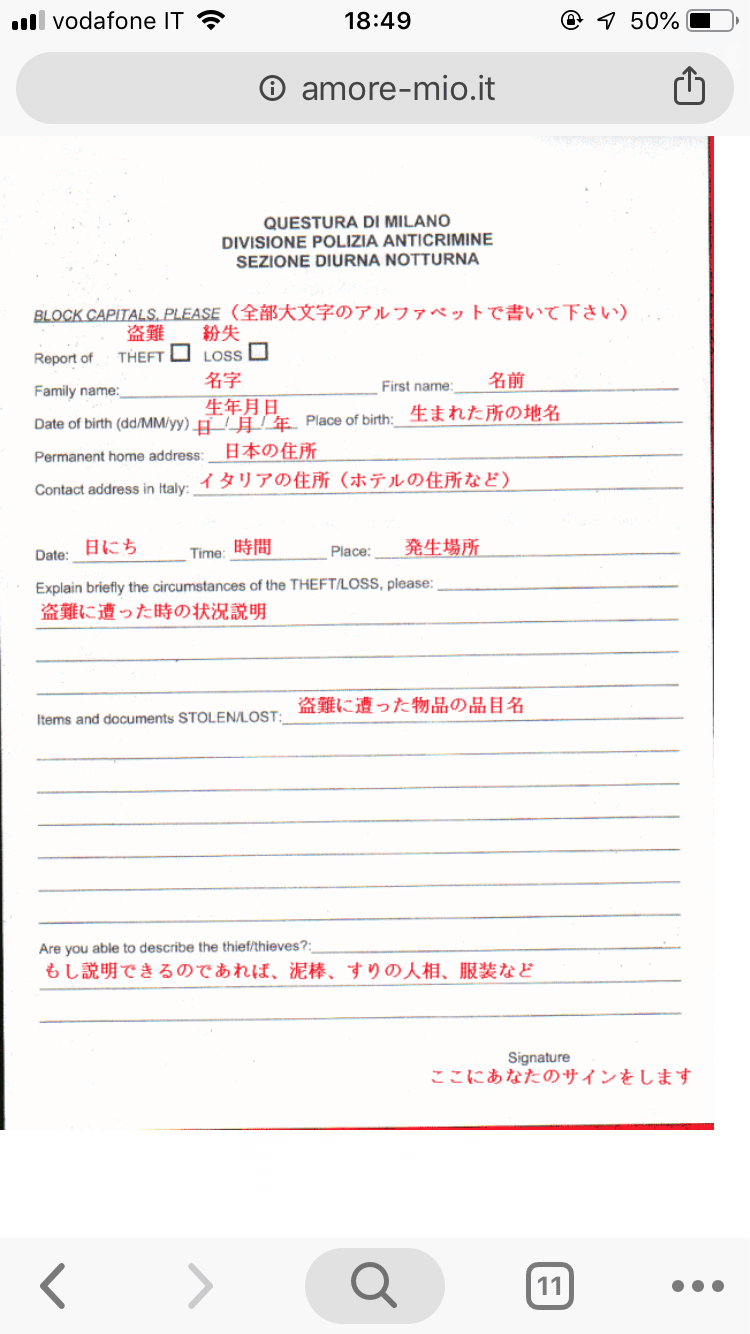 vodafone IT 18:49 50%
amore-mio.it
QUESTURA DI MILANO
DIVISIONE POLIZIA ANTICRIMINE
SEZIONE DIURNA NOTTURNA
BLOCK CAPITALS, PLEASE（全部大文字のアルファベットで書いて下さい）
盗難 紛失
Report of THEFT LOSS
名字 名前
Family name: First name:
生年月日
Date of birth (dd/MM/yy) 日 / 月 / 年 Place of birth: 生まれた所の地名
Permanent home address: 日本の住所
Contact address in Italy: イタリアの住所（ホテルの住所など）
Date: 日にち Time: 時間 Place: 発生場所
Explain briefly the circumstances of the THEFT/LOSS, please:
盗難に遭った時の状況説明
Items and documents STOLEN/LOST: 盗難に遭った物品の品目名
Are you able to describe the thief/thieves?:
もし説明できるのであれば、泥棒、すりの人相、服装など
Signature
ここにあなたのサインをします
11